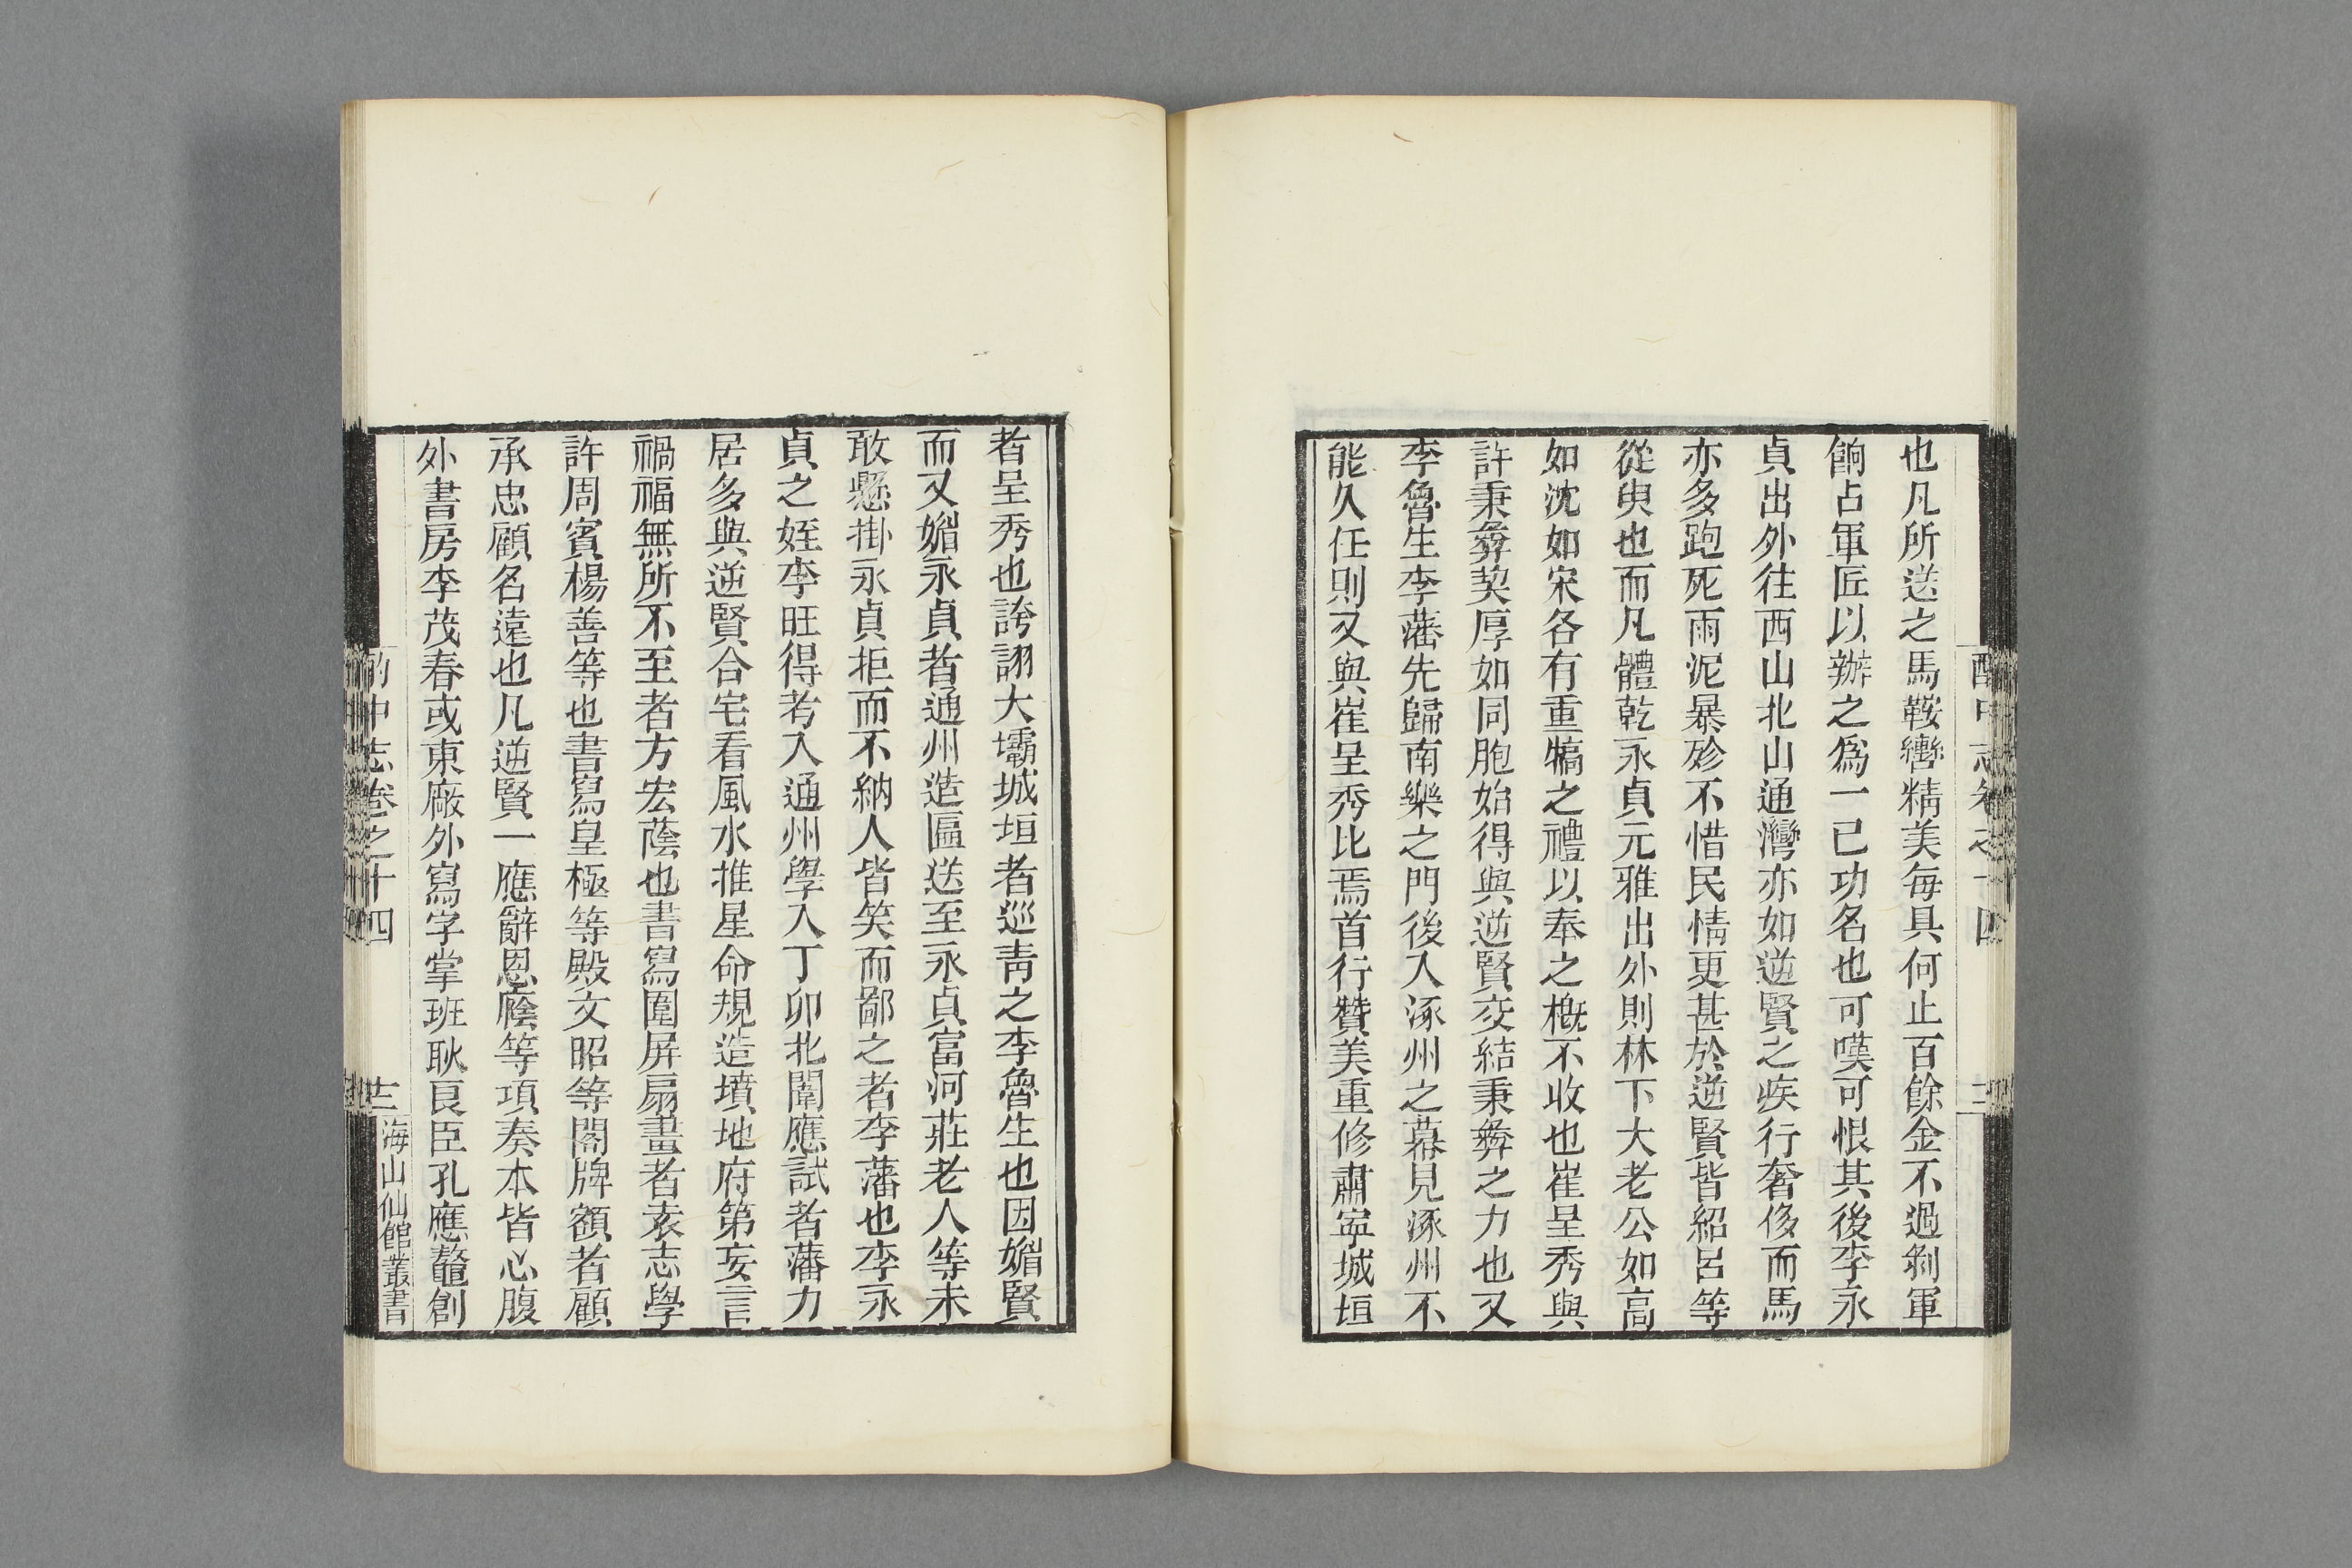 酌中志卷之十四
也凡所送之馬鞍轡精美每具何止百餘金不過剝軍
餉占軍匠以辦之爲一己功名也可嘆可恨其後李永
貞出外往西山北山通灣亦如逆賢之疾行奢侈而馬
亦多跑死雨泥暴殄不惜民情更甚於逆賢皆紹呂等
從臾也而凡體乾永貞元雅出外則林下大老公如高
如沈如宋各有重犒之禮以奉之概不收也崔呈秀與
許秉彝契厚如同胞始得與逆賢交結秉彝之力也又
李魯生李藩先歸南樂之門後入涿州之幕見涿州不
能久任則又與崔呈秀比焉首行贊美重修肅寧城垣
者呈秀也誇詡大壩城垣者巡青之李魯生也因媚賢
而又媚永貞者通州造匾送至永貞富河莊老人等未
敢懸掛永貞拒而不納人皆笑而鄙之者李藩也李永
貞之姪李旺得考入通州學入丁卯北闈應試者藩力
居多與逆賢合宅看風水推星命規造墳地府第妄言
禍福無所不至者方宏蔭也書寫圍屏扇畫者袁志學
許周賓楊善等也書寫皇極等殿文昭等閣牌額者顧
承忠顧名遠也凡逆賢一應辭恩廕等項奏本皆心腹
外書房李茂春或東廠外寫字掌班耿良臣孔應鼇創
酌中志卷之十四
海山仙館叢書